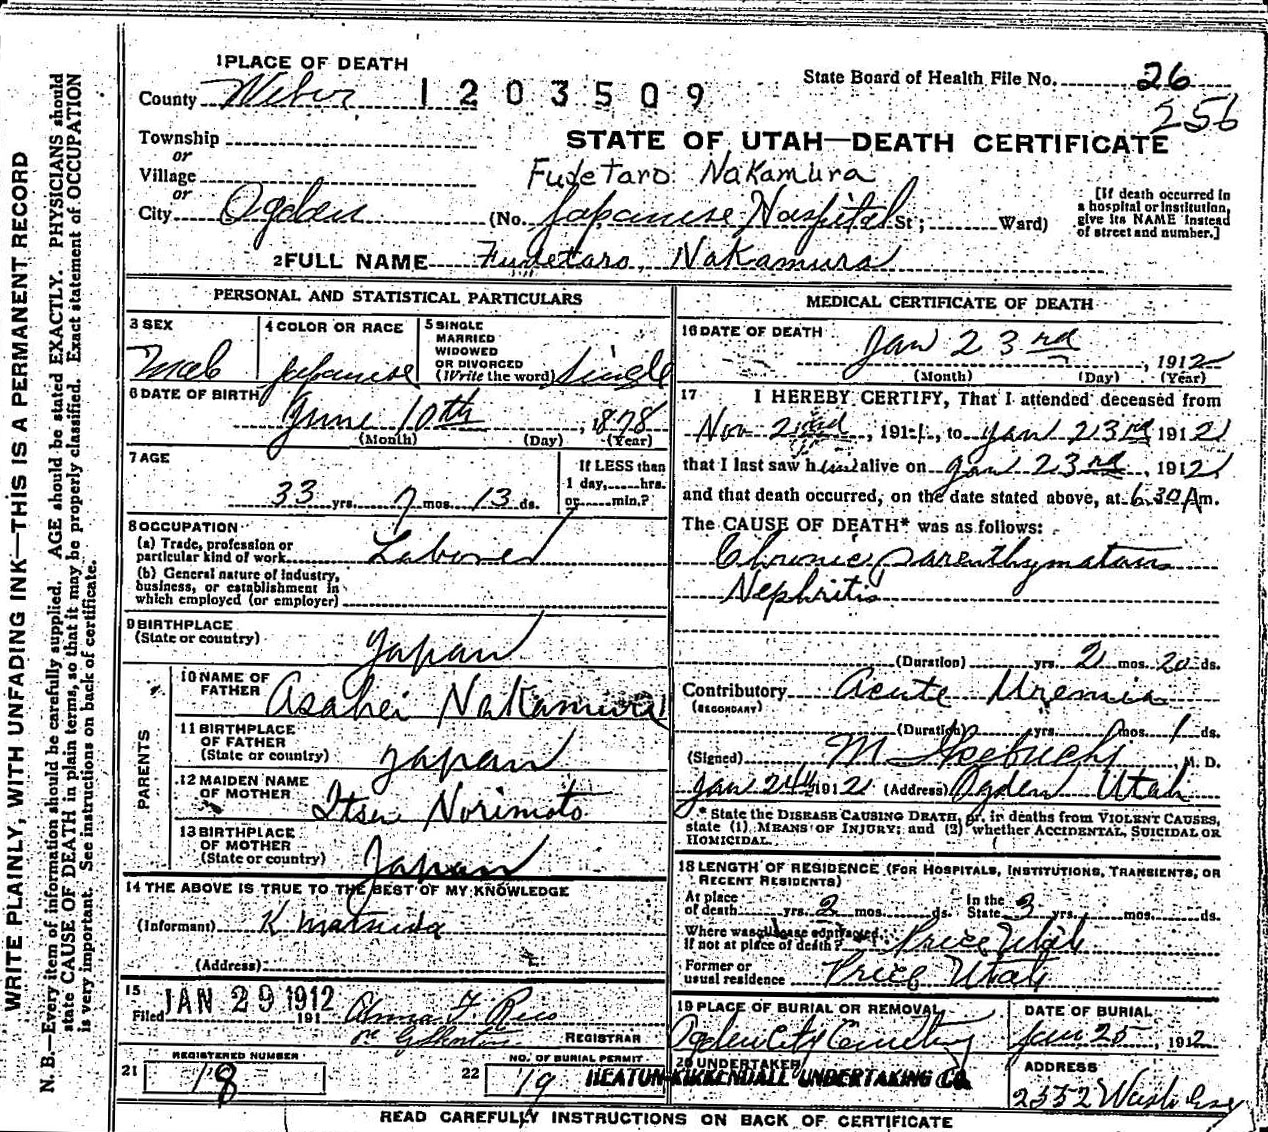 WRITE PLAINLY, WITH UNFADING INK—THIS IS A PERMANENT RECORD
N. B.—Every item of information should be carefully supplied. AGE should be stated EXACTLY. PHYSICIANS should
state CAUSE OF DEATH in plain terms, so that it may be properly classified. Exact statement of OCCUPATION
is very important. See instructions on back of certificate.
1 PLACE OF DEATH
State Board of Health File No. 26
County Weber 1203509
256
Township
STATE OF UTAH—DEATH CERTIFICATE
or
Village
Fudetaro Nakamura
or
City Ogden (No. Japanese Hospital St; Ward)
[If death occurred in
a hospital or institution,
give its NAME instead
of street and number.]
2 FULL NAME Fudetaro Nakamura
PERSONAL AND STATISTICAL PARTICULARS
3 SEX
Male
4 COLOR OR RACE
Japanese
5 SINGLE
MARRIED
WIDOWED
OR DIVORCED
(Write the word) Single
6 DATE OF BIRTH
June 10th, 1878
(Month) (Day) (Year)
7 AGE
33 yrs. 7 mos. 13 ds.
If LESS than
1 day, hrs.
or min.?
8 OCCUPATION
(a) Trade, profession or
particular kind of work Laborer
(b) General nature of industry,
business, or establishment in
which employed (or employer)
9 BIRTHPLACE
(State or country) Japan
PARENTS
10 NAME OF
FATHER Asahei Nakamura
11 BIRTHPLACE
OF FATHER
(State or country) Japan
12 MAIDEN NAME
OF MOTHER
Norimoto
13 BIRTHPLACE
OF MOTHER
(State or country) Japan
14 THE ABOVE IS TRUE TO THE BEST OF MY KNOWLEDGE
(Informant) K Matsuda
(Address)
15
Filed JAN 29 1912 191
REGISTRAR
REGISTERED NUMBER
21 18
NO. OF BURIAL PERMIT
22 19
MEDICAL CERTIFICATE OF DEATH
16 DATE OF DEATH
Jan 23rd, 1912
(Month) (Day) (Year)
17 I HEREBY CERTIFY, That I attended deceased from
Nov, 1911, to Jan 23rd 1912
that I last saw him alive on Jan 23rd, 1912
and that death occurred, on the date stated above, at 6.30 Am.
The CAUSE OF DEATH* was as follows:
Chronic parenthymatous
Nephritis
(Duration) yrs. 2 mos. 20 ds.
Contributory Acute Uremia
(SECONDARY)
(Duration) yrs. mos. 1 ds.
(Signed) M. M. D.
Jan 24th 1912 (Address) Ogden Utah
* State the DISEASE CAUSING DEATH, or, in deaths from VIOLENT CAUSES,
state (1) MEANS OF INJURY; and (2) whether ACCIDENTAL, SUICIDAL OR
HOMICIDAL.
18 LENGTH OF RESIDENCE (FOR HOSPITALS, INSTITUTIONS, TRANSIENTS, OR
RECENT RESIDENTS)
At place
of death yrs. 2 mos. ds.
In the
State 3 yrs. mos. ds.
Where was disease contracted,
if not at place of death? Price Utah
Former or
usual residence Price Utah
19 PLACE OF BURIAL OR REMOVAL
Ogden City Cemetery
DATE OF BURIAL
Jan 25, 1912
20 UNDERTAKER
HEATON-KIRKENDALL UNDERTAKING CO.
ADDRESS
2352 Wash Ave
READ CAREFULLY INSTRUCTIONS ON BACK OF CERTIFICATE